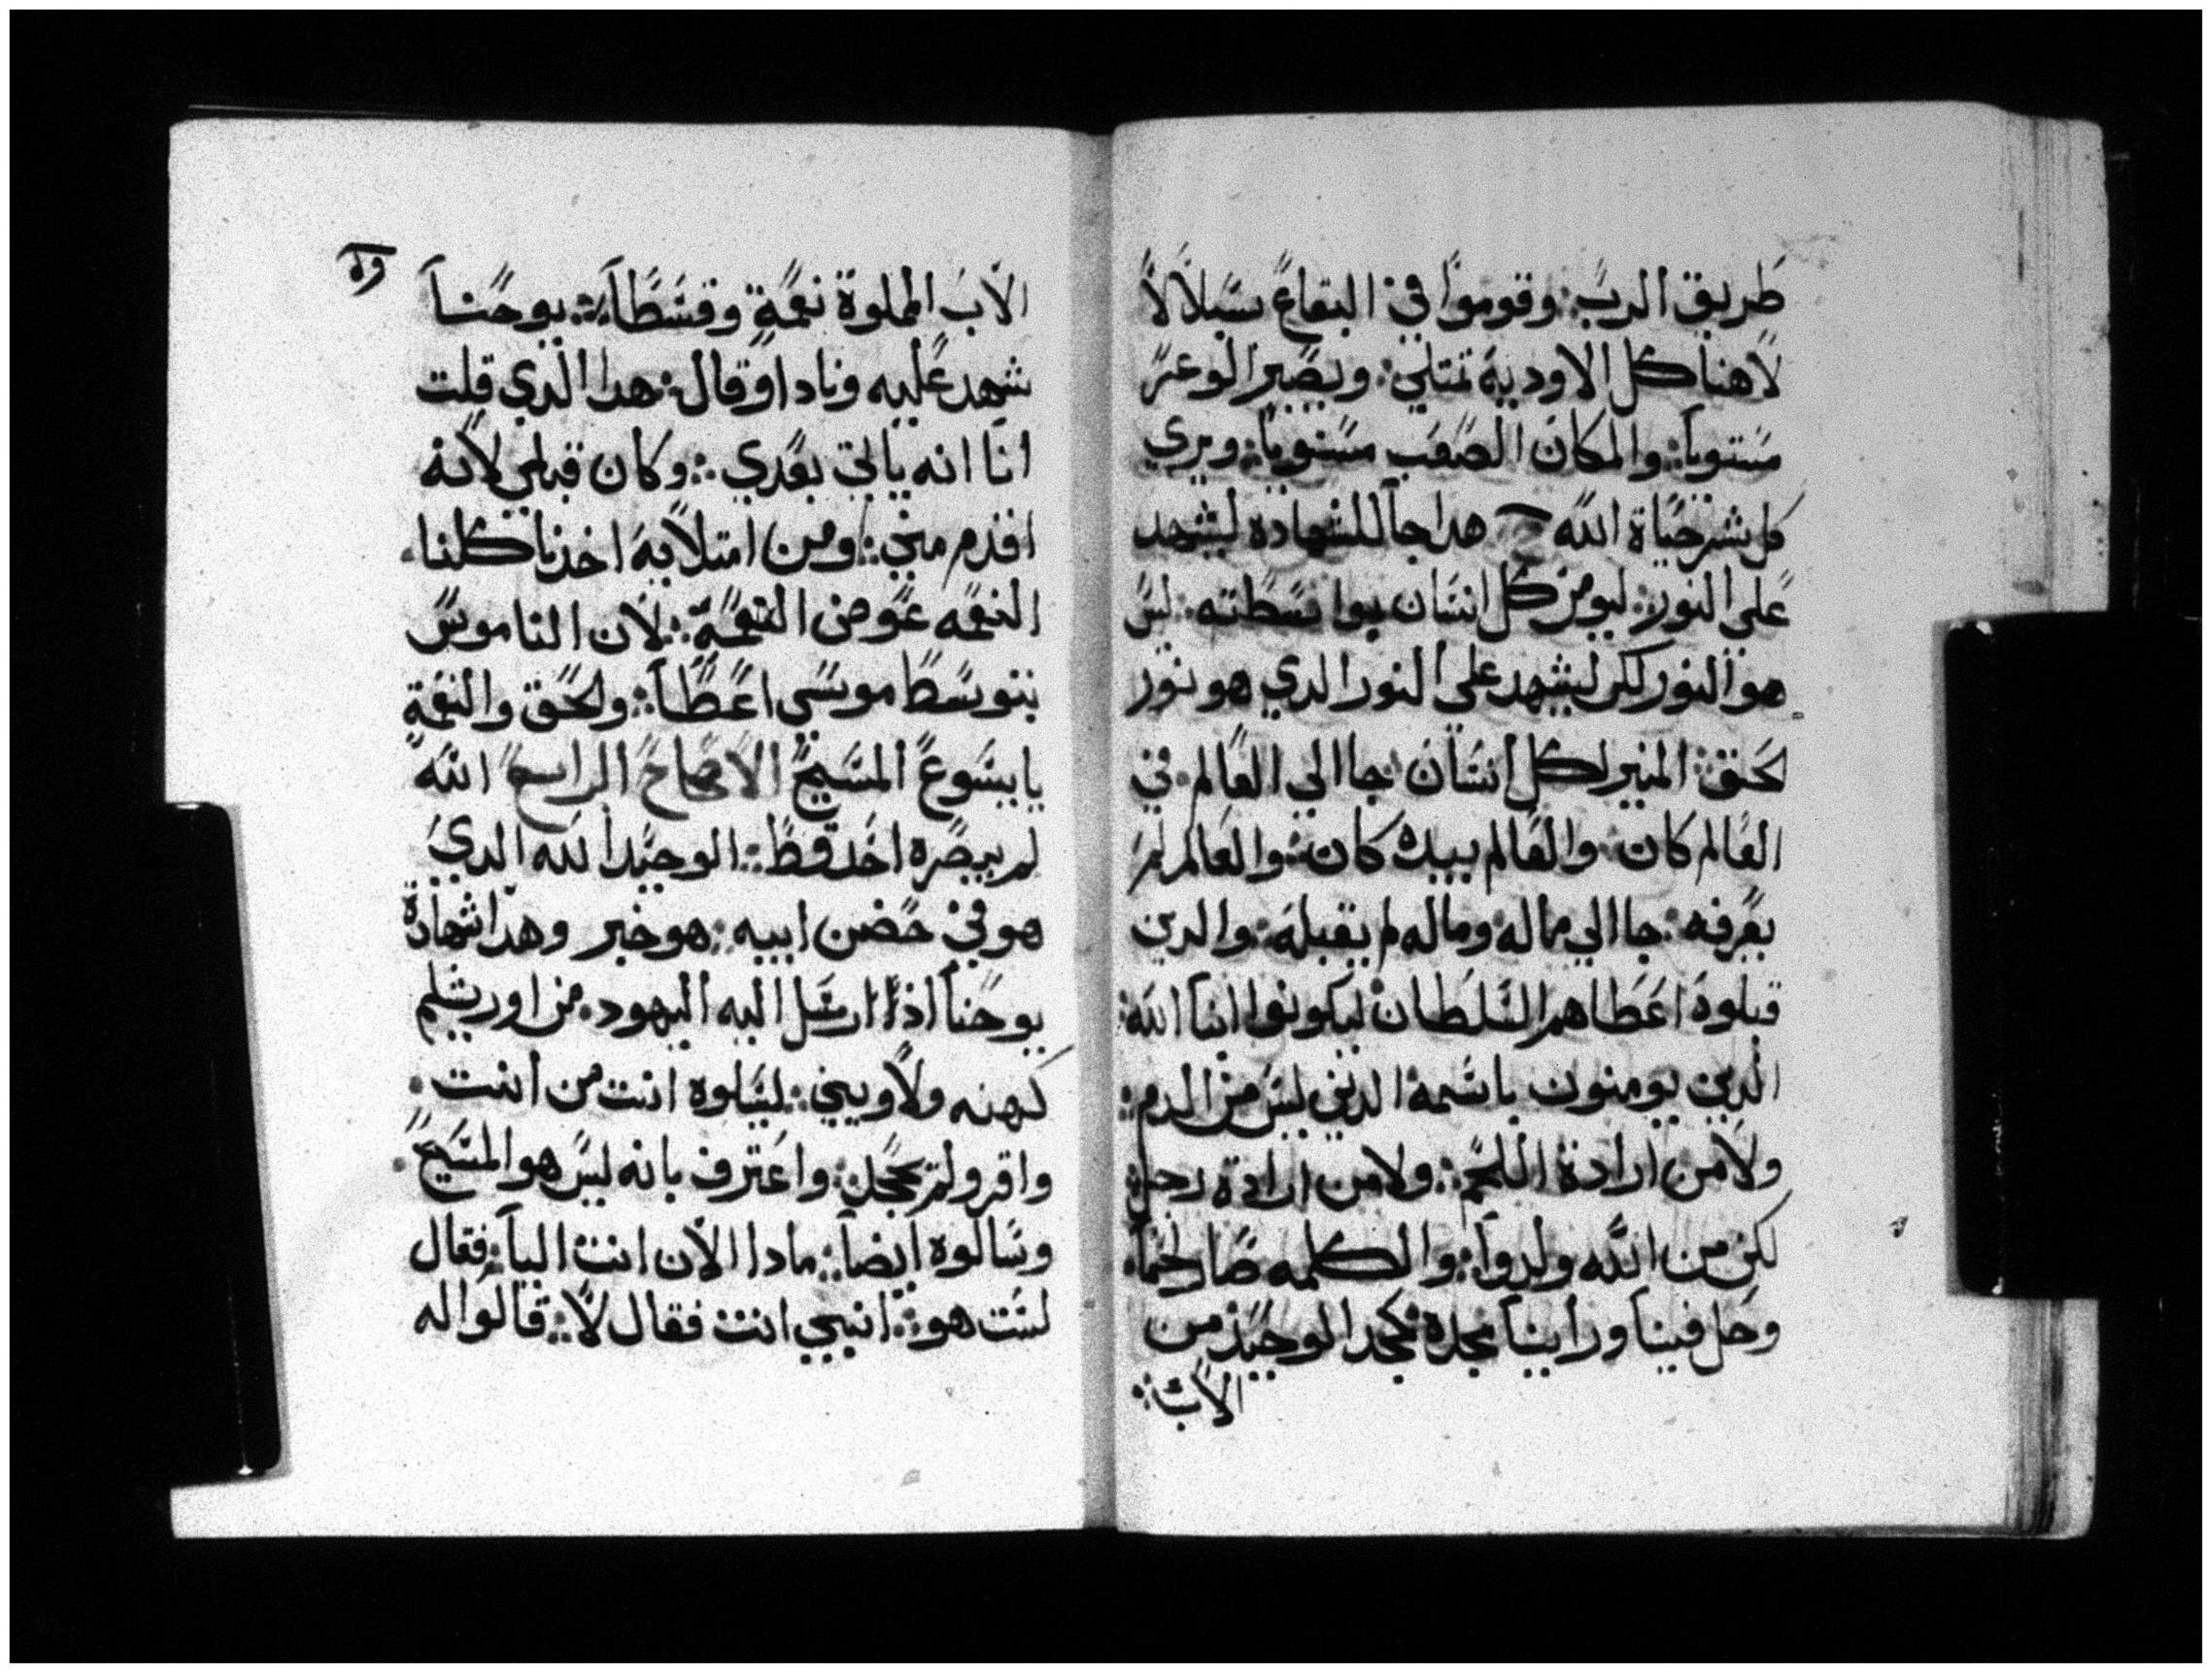 طريق الرب: وقوموا في البقاع سبلا لا
لاهنا كل الاوديه تمتلي: ويصير الوعر
مستويا: والمكان الصعب مستويا: ويري
كل بشر حياة الله هدا جا للشهاده ليشهد
علي النور: ليومن كل انسان بوا سطته: ليس
هو النور لكن ليشهد علي النور الدي هو نور
لحق: المنير لكل انسان جا الي العالم: في
العالم كان: والعالم بيده كان: والعالم لم
يعرفه: جا الي مماله وماله لم يقبله: والدين
قبلوه اعطاهم السلطان ليكونوا ابنا الله:
الدين يومنون باسمه الدين ليس من الدم:
ولا من ارادة اللحم: ولا من ارادة رجل:
لكن من الله ولدوا: والكلمه صار لحما:
وحل فينا وراينا مجده مجد الوحيد من
الاب:
الاب المملوة نعمة وقسطا: يوحنا
شهد عليه ونادا وقال: هدا الدي قلت
انا انه ياتي بعدي: وكان قبلي لانه
اقدم مني: ومن امتلايه اخدنا كلنا
النعمه عوض النعمة: لان الناموس
بتوسط موسي اعطا: ولحق والنعمة
يا يسوع المسيح الاصحاح الرابع الله
لم يبصره احد قط: الوحيد الله الدي
هو في حضن ابيه: هو خبر وهدا شهادة
يوحنا اذا ارسل اليه اليهود من اورشليم
كهنه ولاويين: ليسالوه انت من انت
واقر ولم يحجل: واعترف بانه ليس هو المسيح
وسالوه ايضا: مادا الان انت اليا: فقال
لست هو: انبيي انت فقال لا: قالوا له